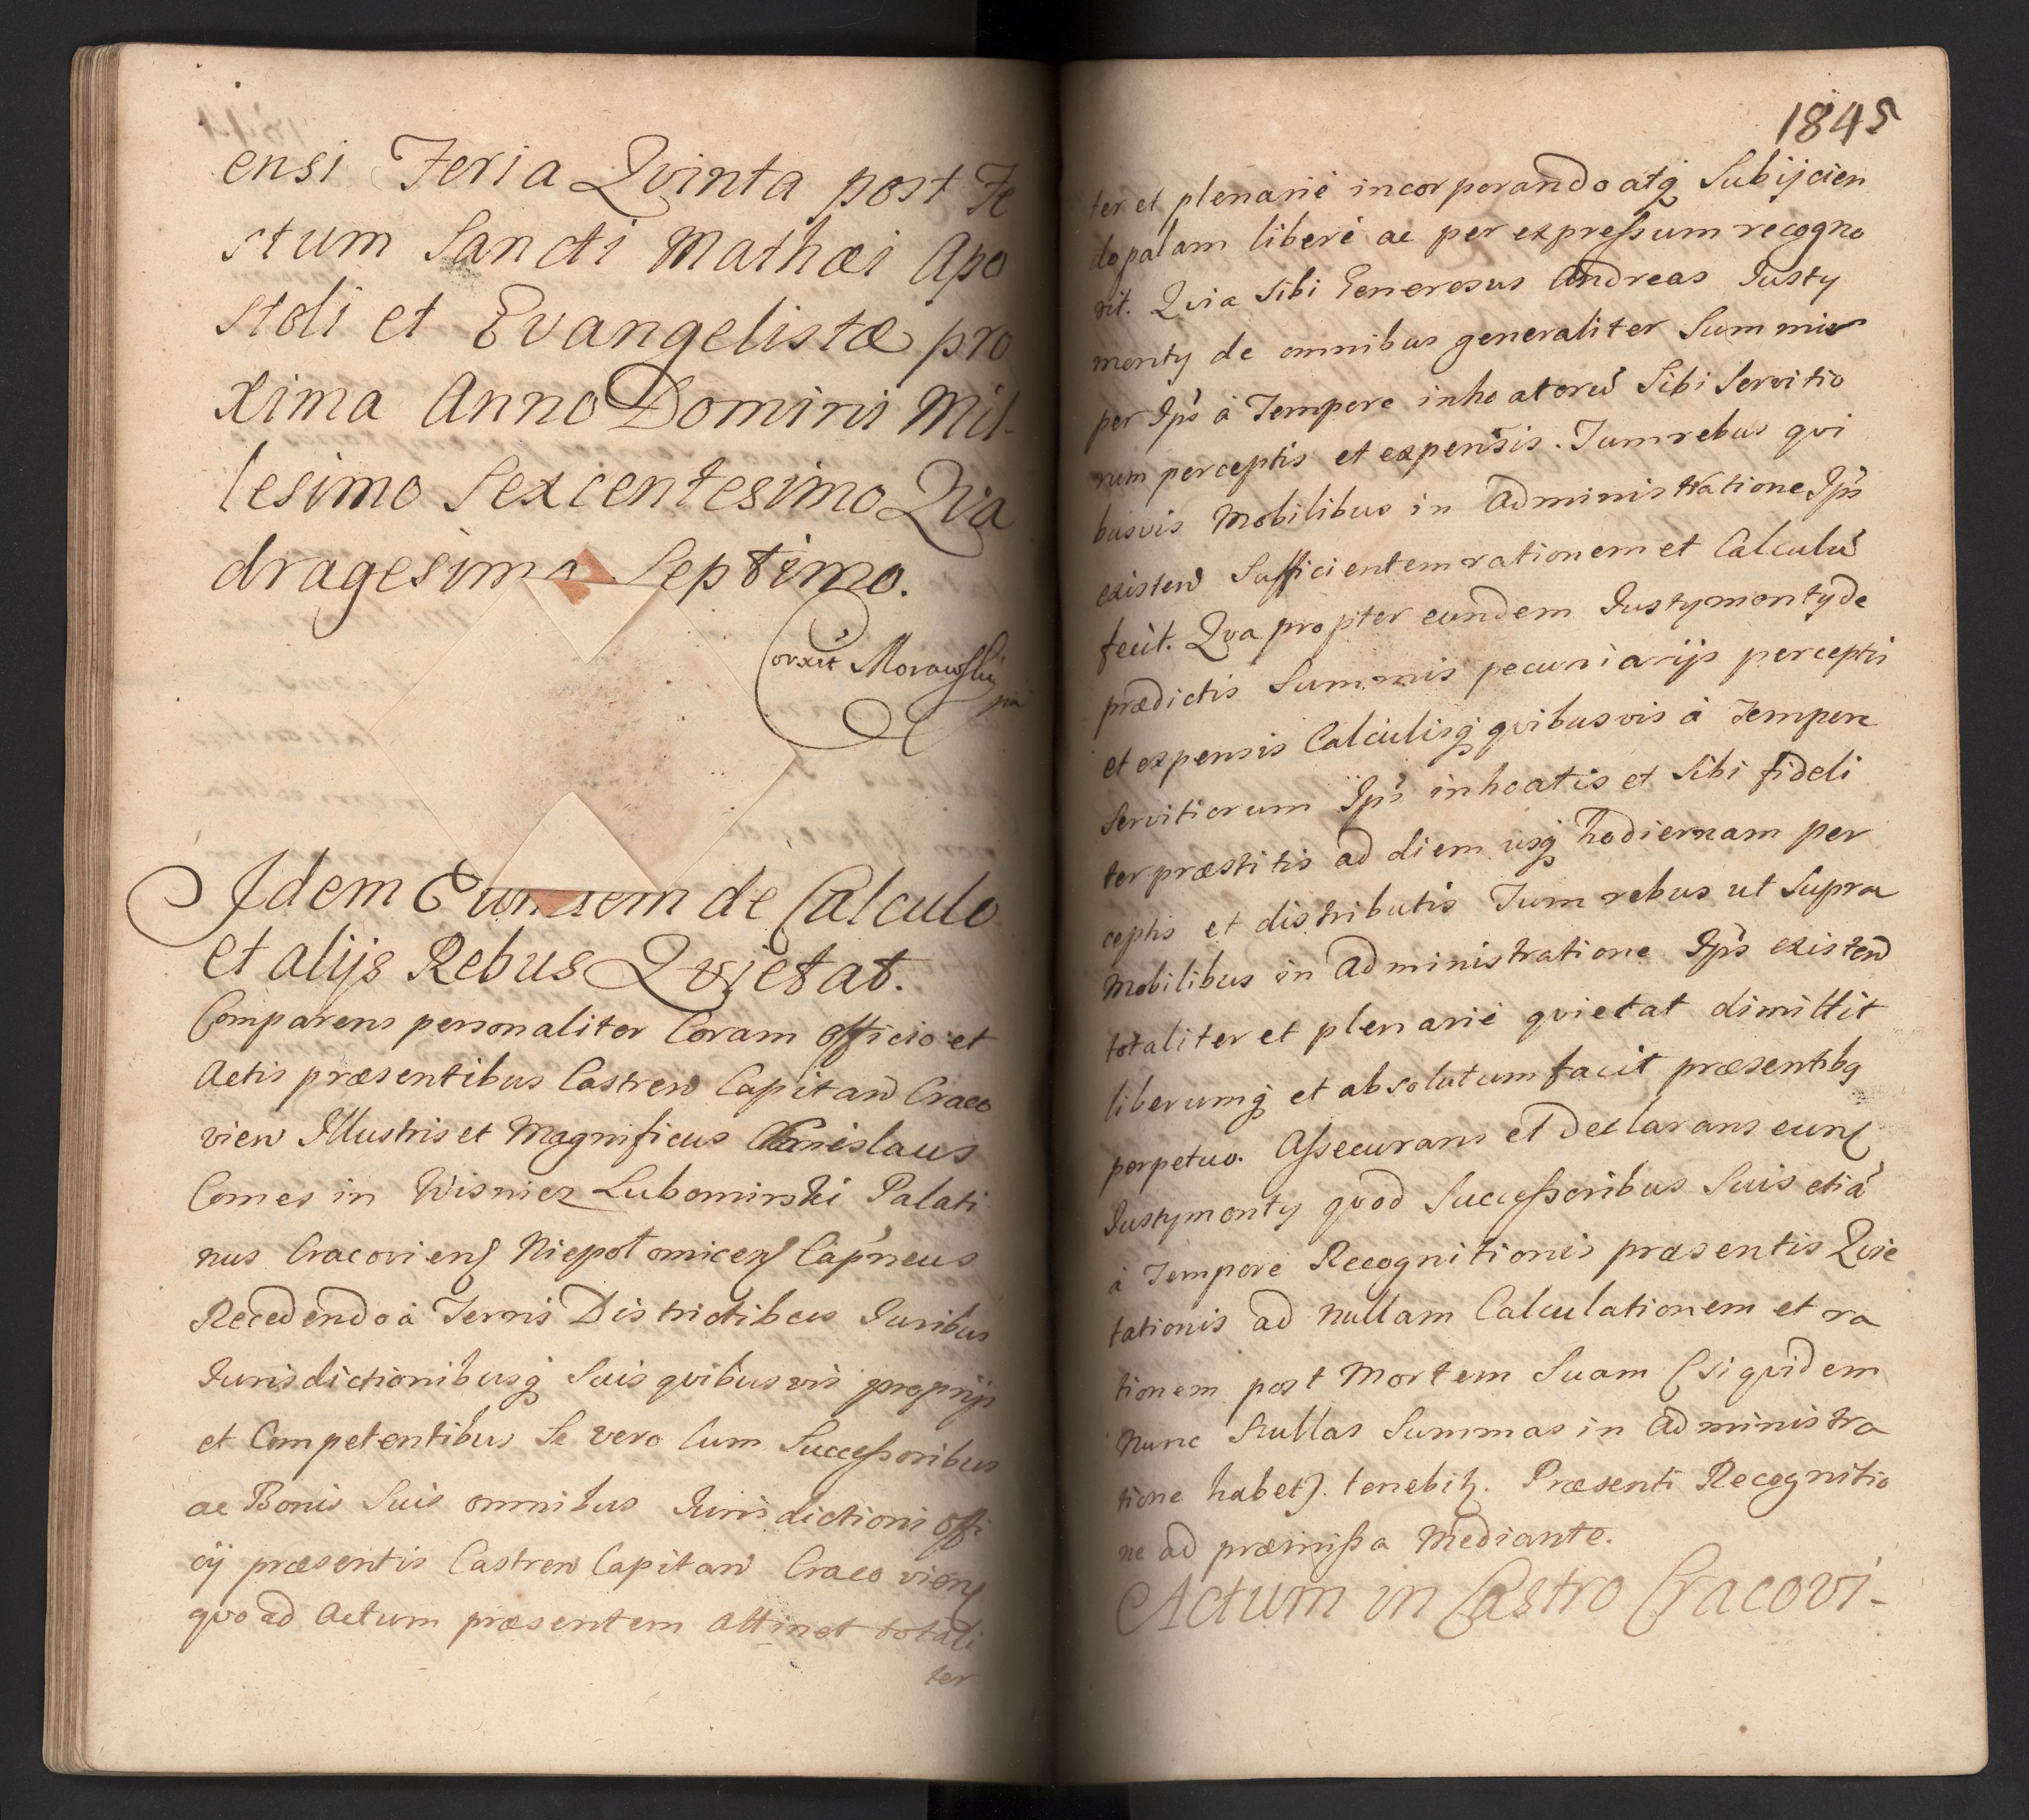 ensi Feria Qvinta post Fe
stum Sancti Mathæi Apo
stoli et Evangelistæ pro
xima Anno Domini Mil-
lesimo Sexcentesimo Qva
dragesimo Septimo.
Corxit Morawski
Idem Eundem de Calculo
et alijs Rebus Qvietat.
Comparens personaliter Coram officio et
Actis præsentibus Castren Capitan Craco
vien Illustris et Magnificus Stanislaus
Comes in Wisnicz Lubomirski Palati
nus Cracoviens Niepolomicens Capneus
Recedendo à Terris Districtibus Iuribus
Iurisdictionibusq Suis qvibusvis proprijs
et Competentibus Se vero Cum Successoribus
ac Bonis Suis omnibus Iurisdictioni offi
cij præsentis Castren Capitan Cracoviens
qvo ad Actum præsentem attinet totali
ter
1845
ter et plenarié incorporando atq Subijcien
do palam liberé ac per expressum recogno
vit. Qvia Sibi Generosus Andreas Iusty
monty de omnibus generaliter Summis
per Ips à Tempore inhoatorū Sibi Servitio
rum perceptis et expensis. Tum rebus qvi
busvis Mobilibus in Administratione Ips
existen Sufficientem rationem et Calculū
fecit. Qva propter eundem Iustymonty de
prædictis Summis pecuniarijs perceptis
et expensis Calculisq qvibusvis à Tempore
Servitiorum Ips inhoatis et Sibi fideli
ter præstitis ad diem usq hodiernam per
ceptis et distributis Tum rebus ut Supra
Mobilibus in Administratione Ips existen
totaliter et plenarié qvietat dimittit
liberumq et absolutum facit præsentibq
perpetuo. Assecurans et Declarans eund
Iustymonty qvod Successoribus Suis etiā
à Tempore Recognitionis præsentis Qvie
tationis ad nullam Calculationem et ra
tionem post Mortem Suam (siqvidem
Nunc Nullas Summas in Administra
tione habet). tenebit. Præsenti Recognitio
ne ad præmissa Mediante.
Actum in Castro Cracovi-